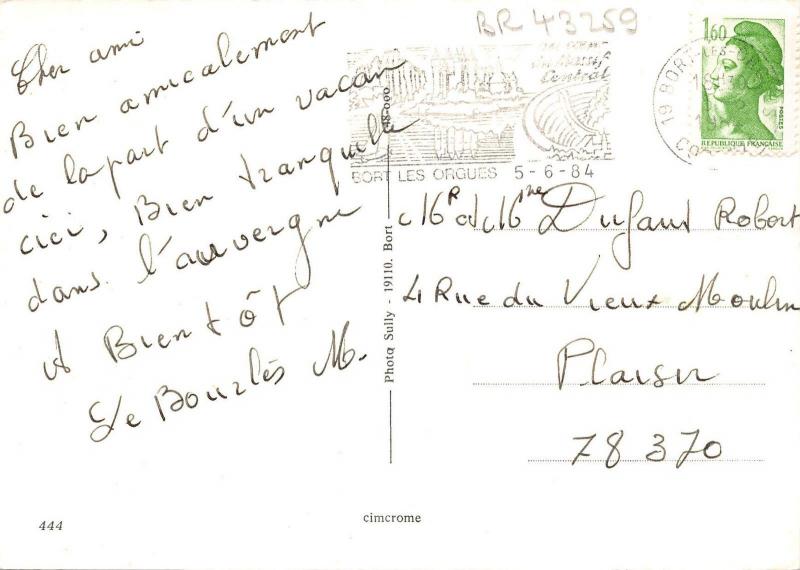 BR 43259
Cher ami
Bien amicalement
de la part d'un vacan
cier, Bien tranquille
dans l'auvergne
A Bientôt
Le Bourlès M.
444
au cœur
du Massif
Central
BORT LES ORGUES 5-6-84
1,60
POSTES
REPUBLIQUE FRANÇAISE
19 BORT-LES-ORGUES
Mr et Mme Dufaud Robert
4 Rue du Vieux Moulin
Plaisir
78 370
Photo Sully - 19110. Bort - 48-000
cimcrome